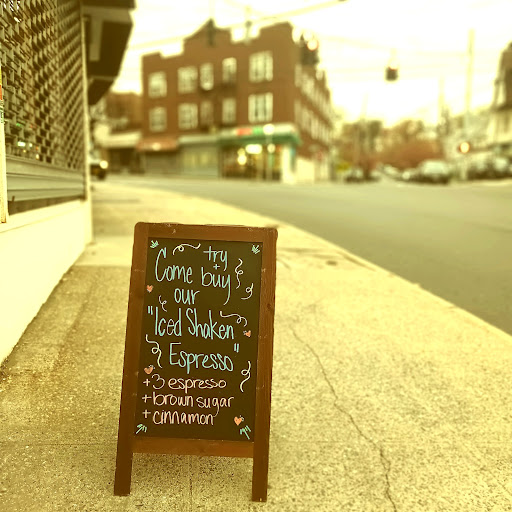 try
Come + buy
our
"Iced Shaken
Espresso"
+3 espresso
+brown sugar
+cinnamon